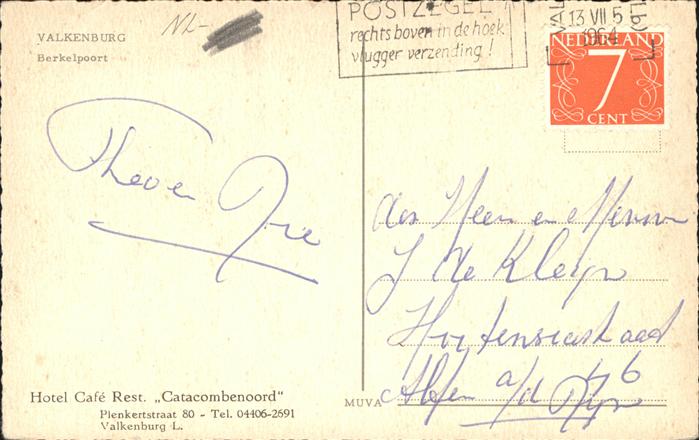 VALKENBURG
Berkelpoort
NL-
POSTZEGEL
rechts boven in de hoek
vlugger verzending!
13 VII 5
1964
NEDERLAND
7
CENT
Theo en Drie
den Heer en Mevrouw
J de Kleijn
Hortensiastraat
46
Alfen a/d Rijn
Hotel Café Rest. „Catacombenoord"
Plenkertstraat 80 - Tel. 04406-2691
Valkenburg L.
MUVA